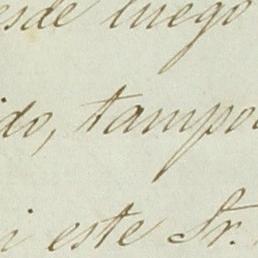 esde luego
ido, tampo
i este Sr.